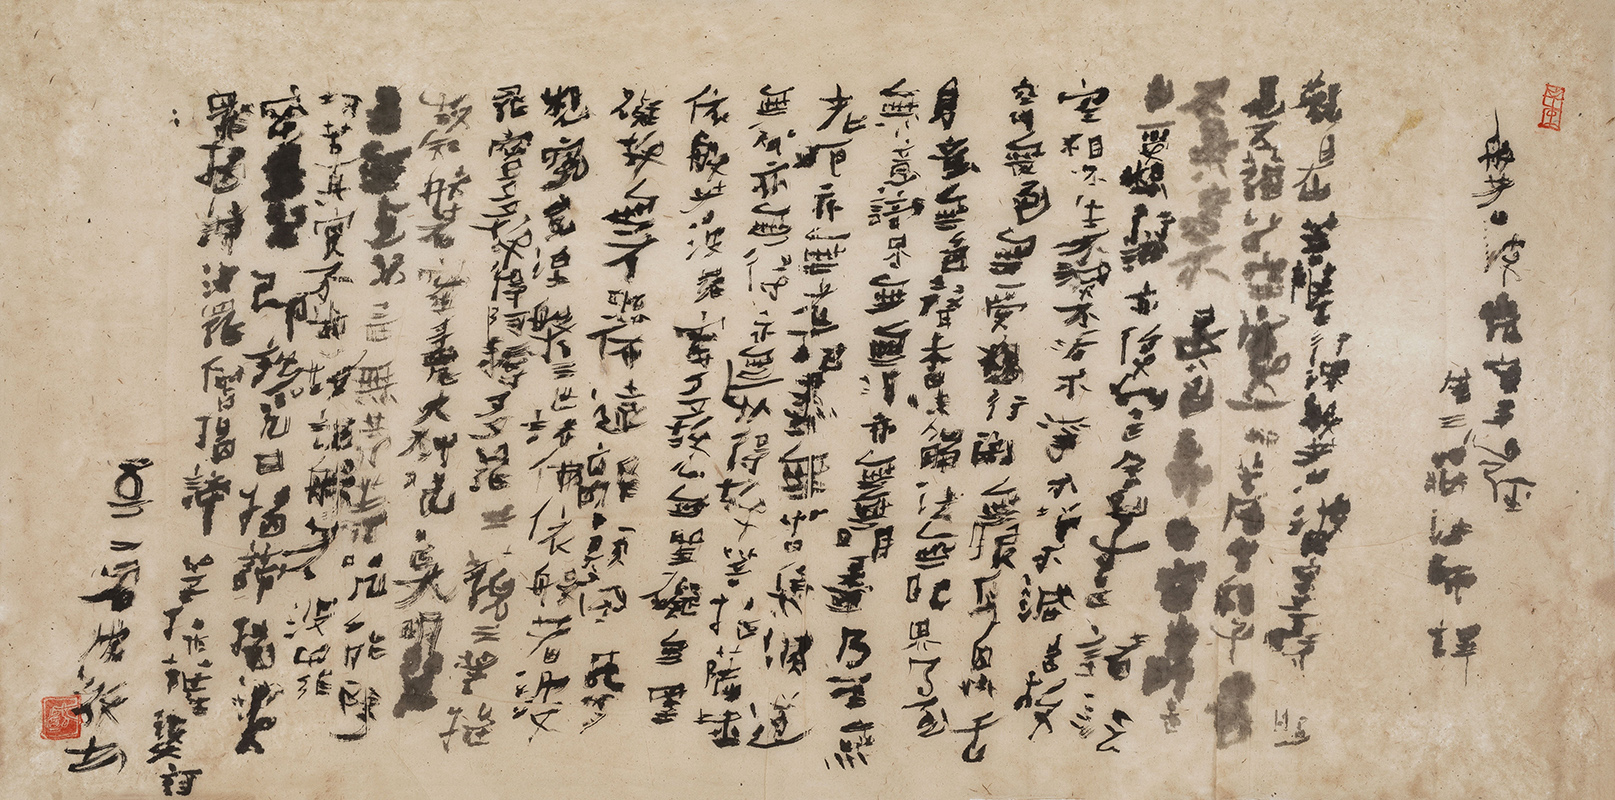 般若波羅蜜多心經
唐三藏法師譯
觀自在菩薩行深般若波羅蜜多時照
見五蘊皆空度一切苦厄舍利子色
不異空空不異色色即是空空即是色
受想行識亦復如是舍利子是諸法
空相不生不滅不垢不淨不增不減是故
空中無色無受想行識無眼耳鼻舌
身意無色聲香味觸法無眼界乃至
無意識界無無明亦無無明盡乃至無
老死亦無老死盡無苦集滅道
無智亦無得以無所得故菩提薩埵
依般若波羅蜜多故心無罣礙無罣
礙故無有恐怖遠離顛倒夢
想究竟涅槃三世諸佛依般若波
羅蜜多故得阿耨多羅三藐三菩提
故知般若波羅蜜多是大神咒是大明
咒是無上咒是無等等咒能除
一切苦真實不虛故說般若波羅
蜜多咒即說咒曰揭諦揭諦波
羅揭諦波羅僧揭諦
菩提薩婆訶